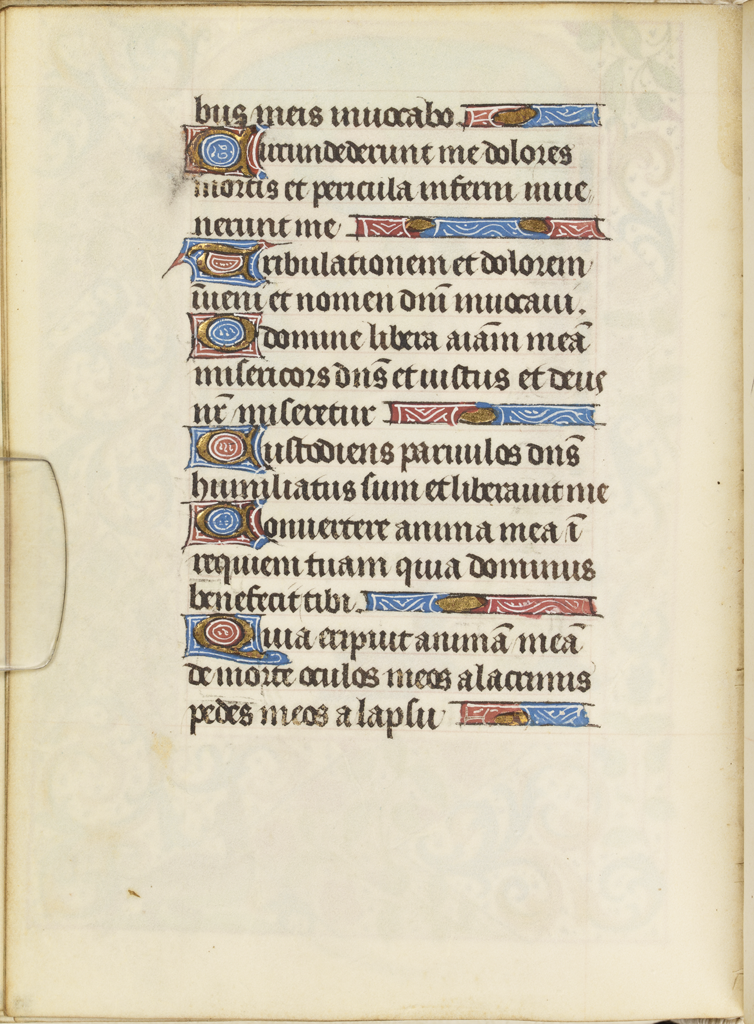 bus meis inuocabo
Circundederunt me dolores
mortis et pericula inferni inue
nerunt me
Tribulationem et dolorem
īueni et nomen dnī inuocaui.
O domine libera aīam meā
misericors dns̄ et iustus et deus
nr̄ miseretur
Custodiens paruulos dns̄
humiliatus sum et liberauit me
Conuertere anima mea ī
requiem tuam quia dominus
benefecit tibi
Quia eripuit animā meā
de morte oculos meos a lacrimis
pedes meos a lapsu